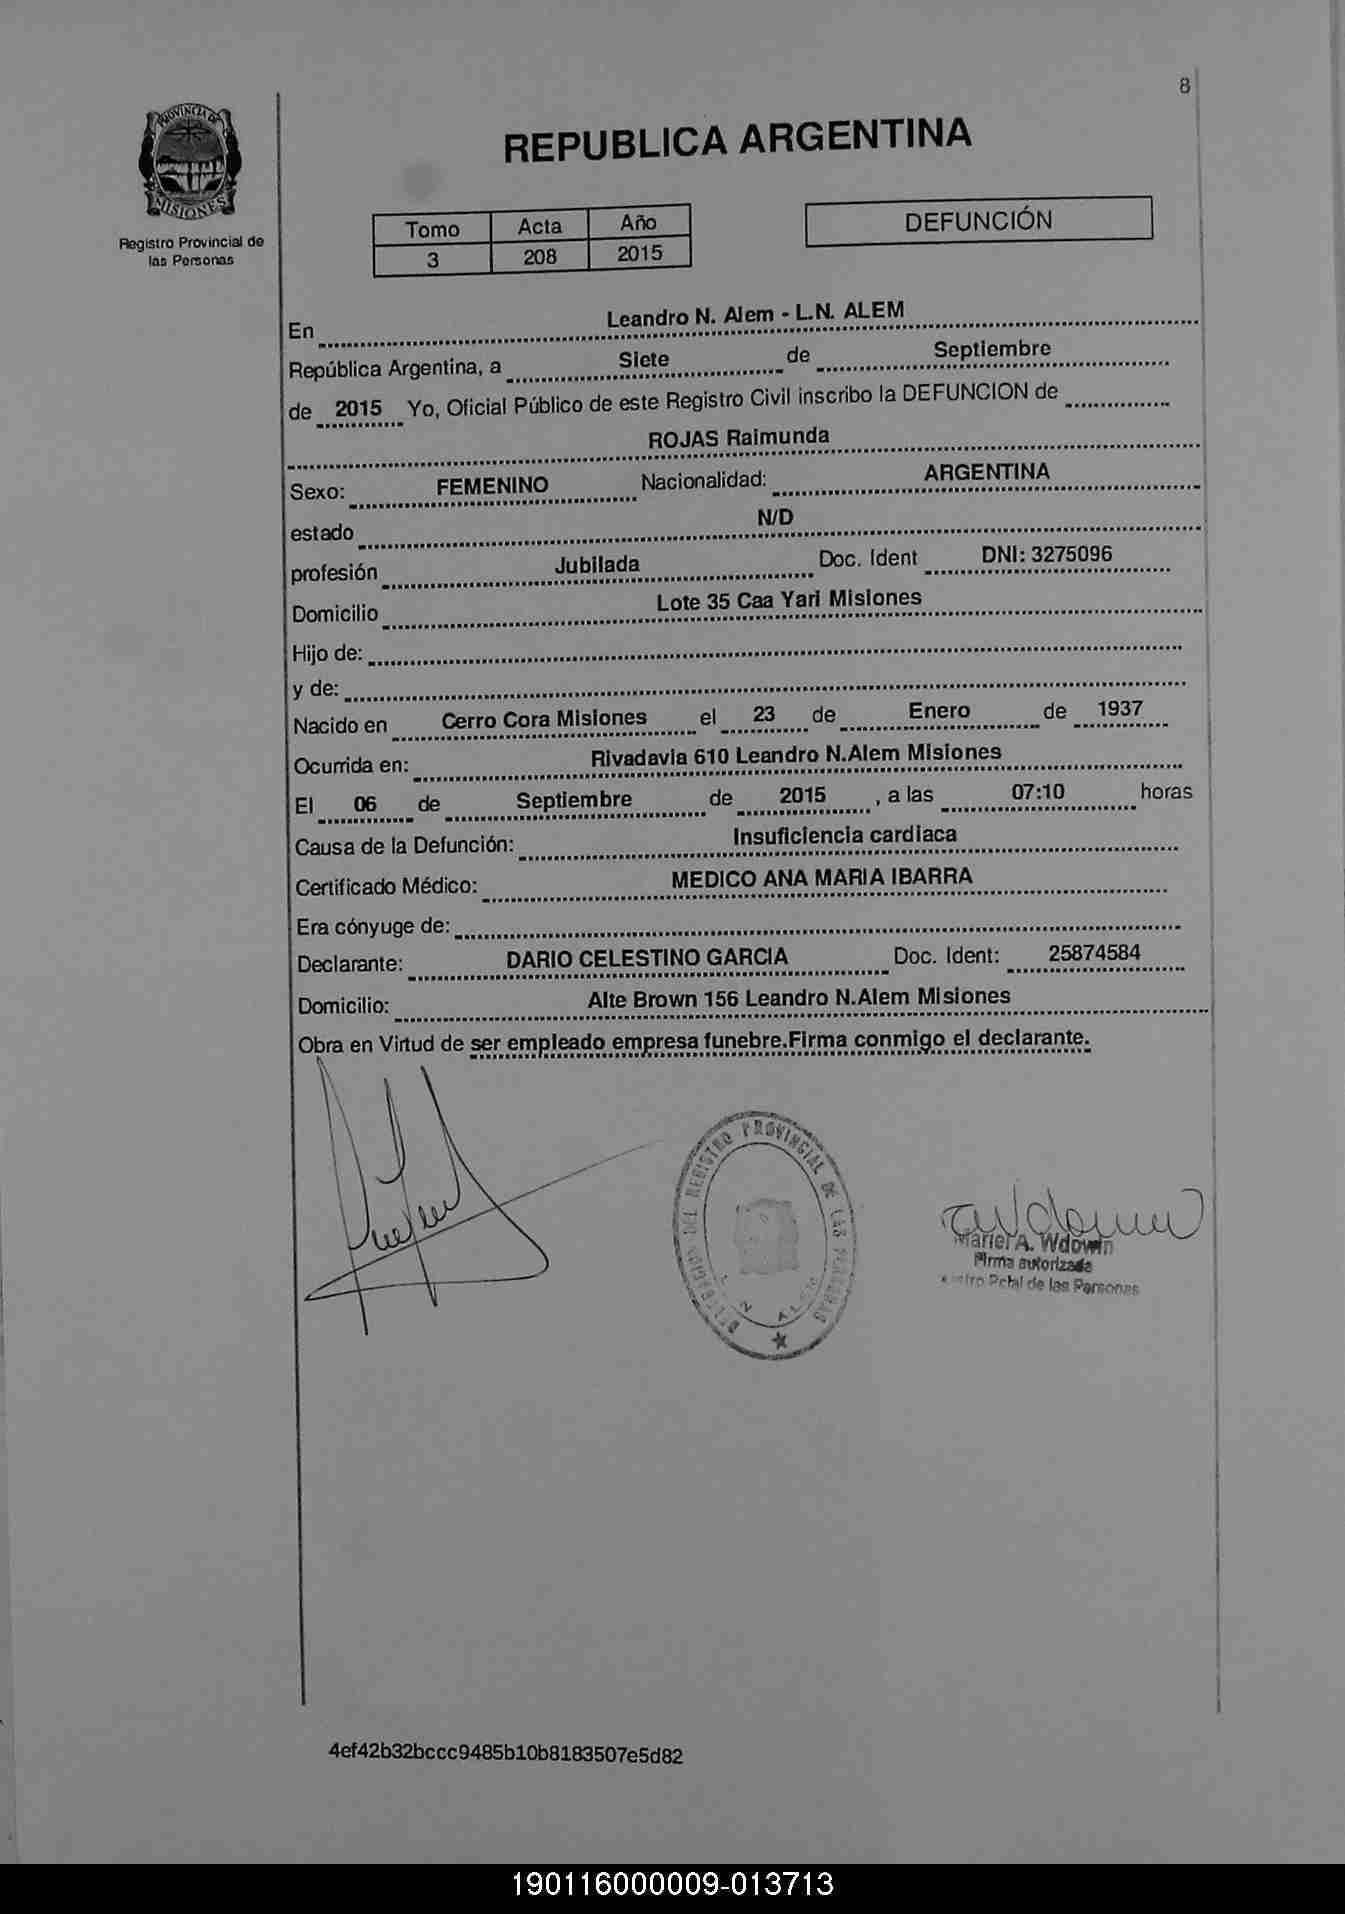 8
PROVINCIA DE
MISIONES
Registro Provincial de
las Personas
REPUBLICA ARGENTINA
Tomo Acta Año
3 208 2015
DEFUNCIÓN
En Leandro N. Alem - L.N. ALEM
República Argentina, a Siete de Septiembre
de 2015 Yo, Oficial Público de este Registro Civil inscribo la DEFUNCION de
ROJAS Raimunda
Sexo: FEMENINO Nacionalidad: ARGENTINA
estado N/D
profesión Jubilada Doc. Ident DNI: 3275096
Domicilio Lote 35 Caa Yari Misiones
Hijo de:
y de:
Nacido en Cerro Cora Misiones el 23 de Enero de 1937
Ocurrida en: Rivadavia 610 Leandro N.Alem Misiones
El 06 de Septiembre de 2015 , a las 07:10 horas
Causa de la Defunción: Insuficiencia cardiaca
Certificado Médico: MEDICO ANA MARIA IBARRA
Era cónyuge de:
Declarante: DARIO CELESTINO GARCIA Doc. Ident: 25874584
Domicilio: Alte Brown 156 Leandro N.Alem Misiones
Obra en Virtud de ser empleado empresa funebre.Firma conmigo el declarante.
DELEGACION DEL REGISTRO PROVINCIAL DE LAS PERSONAS
L. N. ALEM
Mariel A. Wdowin
Firma autorizada
Pcial de las Personas
4ef42b32bccc9485b10b8183507e5d82
190116000009-013713